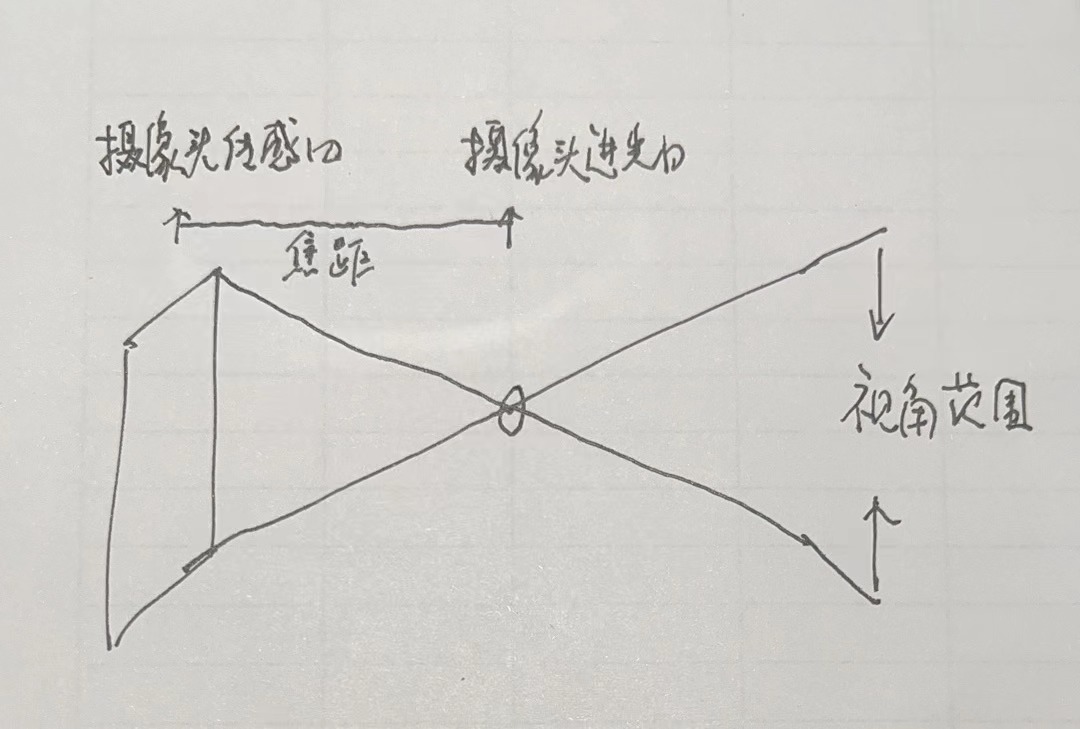 摄像头传感口
摄像头进光口
焦距
视角范围